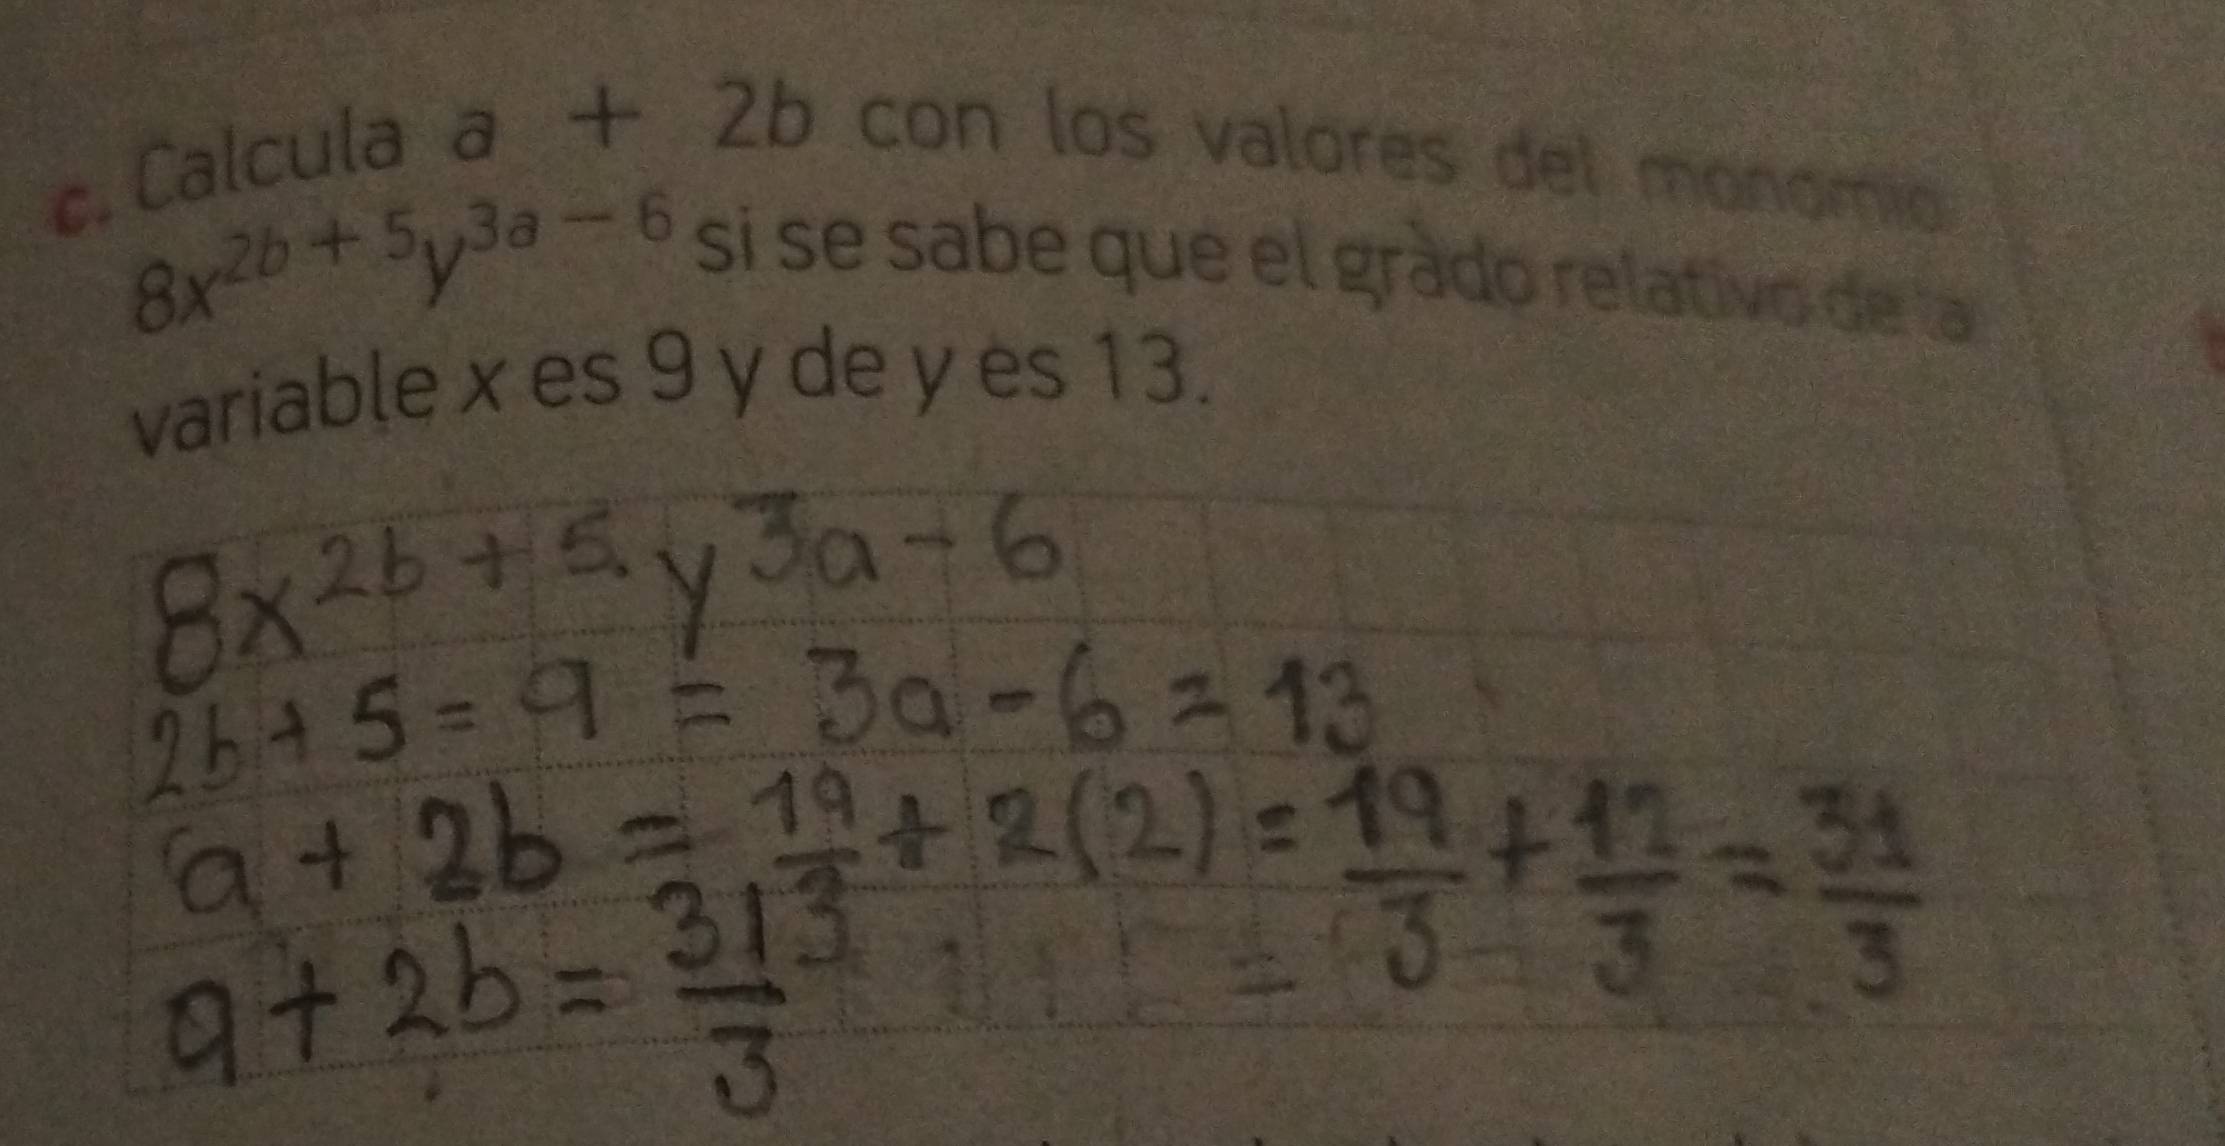 c. Calcula a + 2b con los valores del monomio
8x^{2b + 5}y^{3a - 6} si se sabe que el grado relativo de la
variable x es 9 y de y es 13.
8x^{2b + 5}. y^{3a - 6}
2b + 5 = 9 = 3a - 6 = 13
a + 2b = 19/3 + 2(2) = 19/3 + 12/3 = 31/3
a + 2b = 31/3